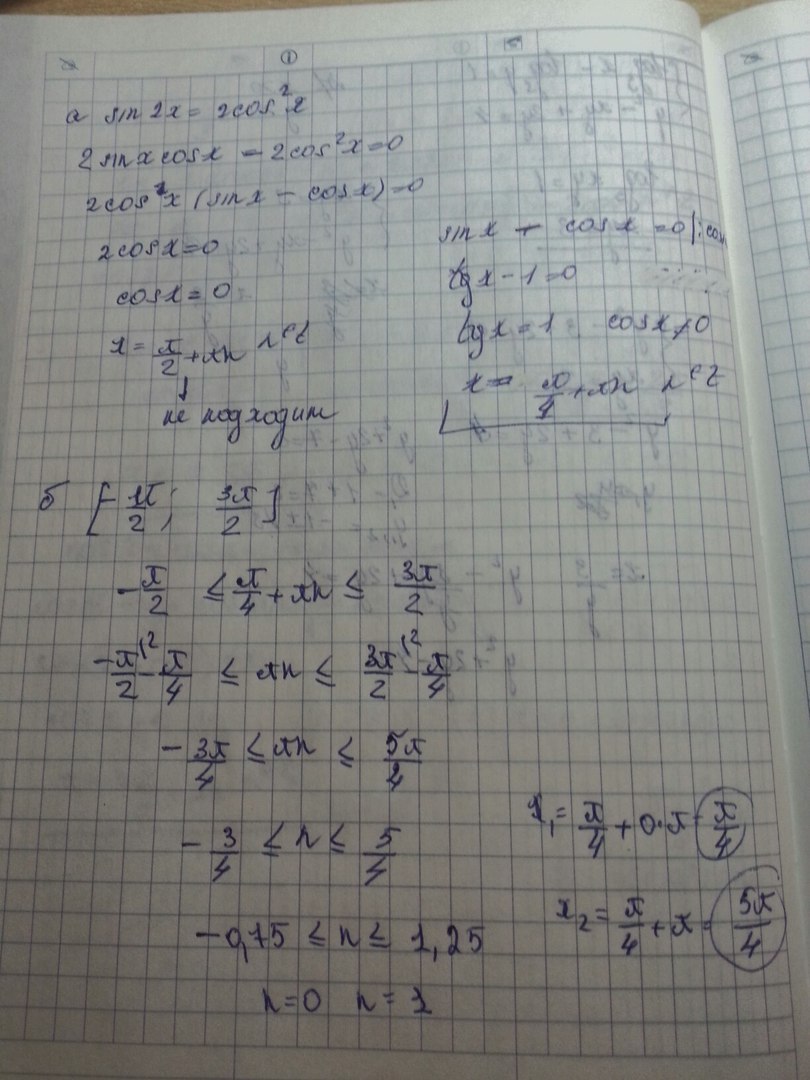 ①
а sin 2x = 2cos²x
2 sinx cosx - 2cos²x = 0
2cosx (sinx - cosx) = 0
2cosx = 0
cosx = 0
x = π/2 + πn n∈Z
↓
не подходит
sinx - cosx = 0 |: cos
tgx - 1 = 0
tgx = 1 cosx ≠ 0
x = π/4 + πn n∈Z
б [-π/2; 3π/2]
-π/2 ≤ π/4 + πn ≤ 3π/2
-π/2 |² - π/4 ≤ πn ≤ 3π/2 |² - π/4
-3π/4 ≤ πn ≤ 5π/4
-3/4 ≤ n ≤ 5/4
-0,75 ≤ n ≤ 1,25
n=0 n=1
x₁ = π/4 + 0·π = π/4
x₂ = π/4 + π = 5π/4